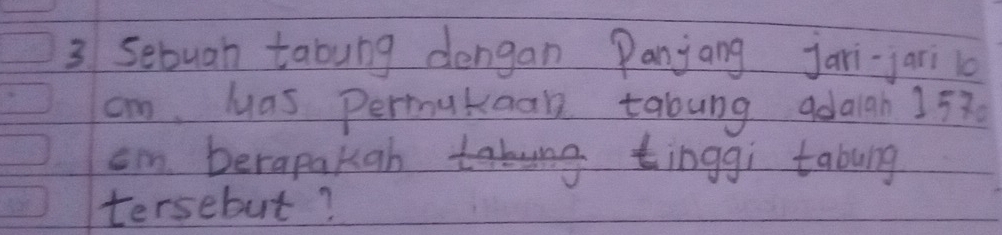 3 Sebuah tabung dengan Panjang jari-jari 10
cm. luas Permukaan tabung adalah 1570
cm. berapakah tabung tinggi tabung
tersebut?